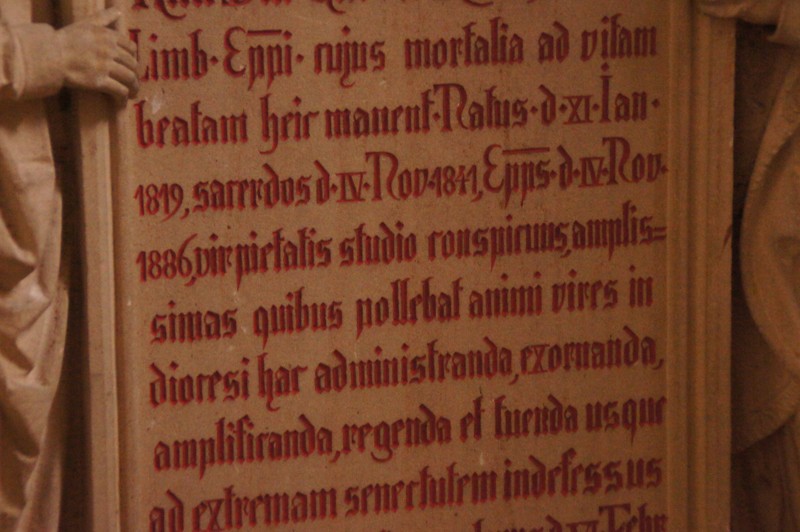 Limb· Ep̅p̅i· cujus mortalia ad vitam
beatam heic manent·Natus·d·XI·Ian·
1819, sacerdos d·IV·Nov·1841, Ep̅p̅s·d·IV·Nov·
1886, vir pietatis studio conspicuus, amplis=
simas quibus pollebat animi vires in
dioecesi hac administranda, exornanda,
amplificanda, regenda et tuenda usque
ad extremam senectutem indefessus